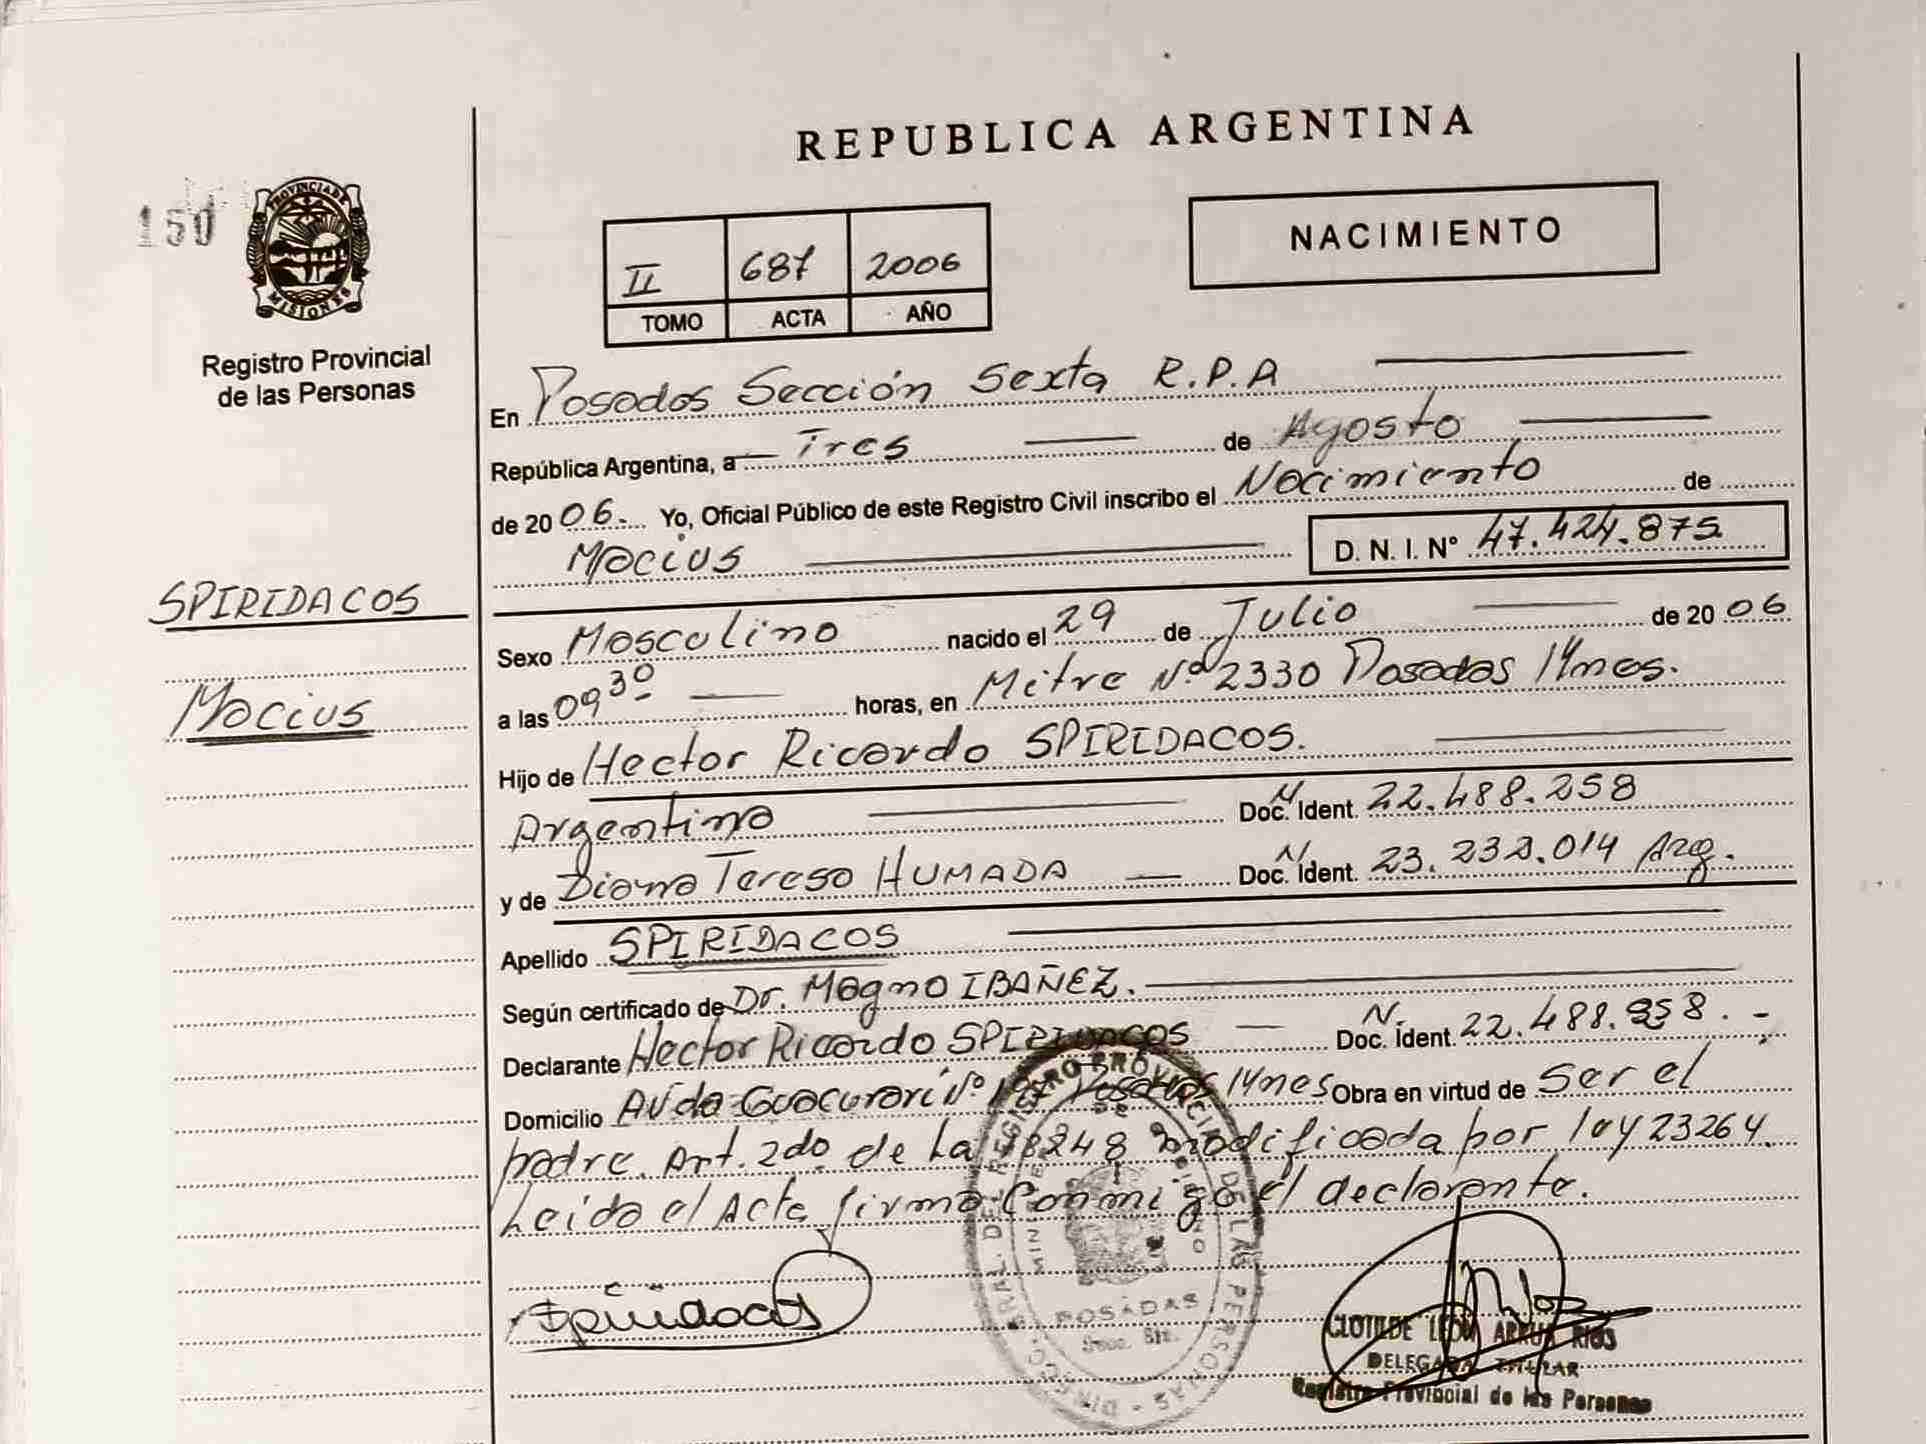 REPUBLICA ARGENTINA
150
PROVINCIA DE
MISIONES
Registro Provincial
de las Personas
II 687 2006
TOMO ACTA AÑO
NACIMIENTO
En Posadas Sección Sexta R.P.A
República Argentina, a Tres de Agosto
de 2006. Yo, Oficial Público de este Registro Civil inscribo el Nacimiento de
Macius D. N. I. N° 47.424.875
SPIRIDACOS
Macius
Sexo Masculino nacido el 29 de Julio de 2006
a las 09 30 horas, en Mitre Nº 2330 Posadas Mnes.
Hijo de Hector Ricardo SPIRIDACOS.
Argentino Doc. N Ident. 22.488.258
y de Diana Teresa HUMADA Doc. N Ident. 23.232.014 Arg.
Apellido SPIRIDACOS
Según certificado de Dr. Magno IBAÑEZ.
Declarante Hector Ricardo SPIRIDACOS Doc. N. Ident. 22.488.258.-
Domicilio Avda Guacurari Nº Posadas Mnes Obra en virtud de Ser el
padre. Art. 2do. de La 18248 modificada por ley 23264.
Leida el Acta firma Conmigo el declarante.
Spiridacos
DIREC. GRAL. DEL REGISTRO PROVINCIAL DE LAS PERSONAS
POSADAS
Secc. 6ta.
CLOTILDE ARRUA RIOS
DELEGADA TITULAR
Registro Provincial de las Personas